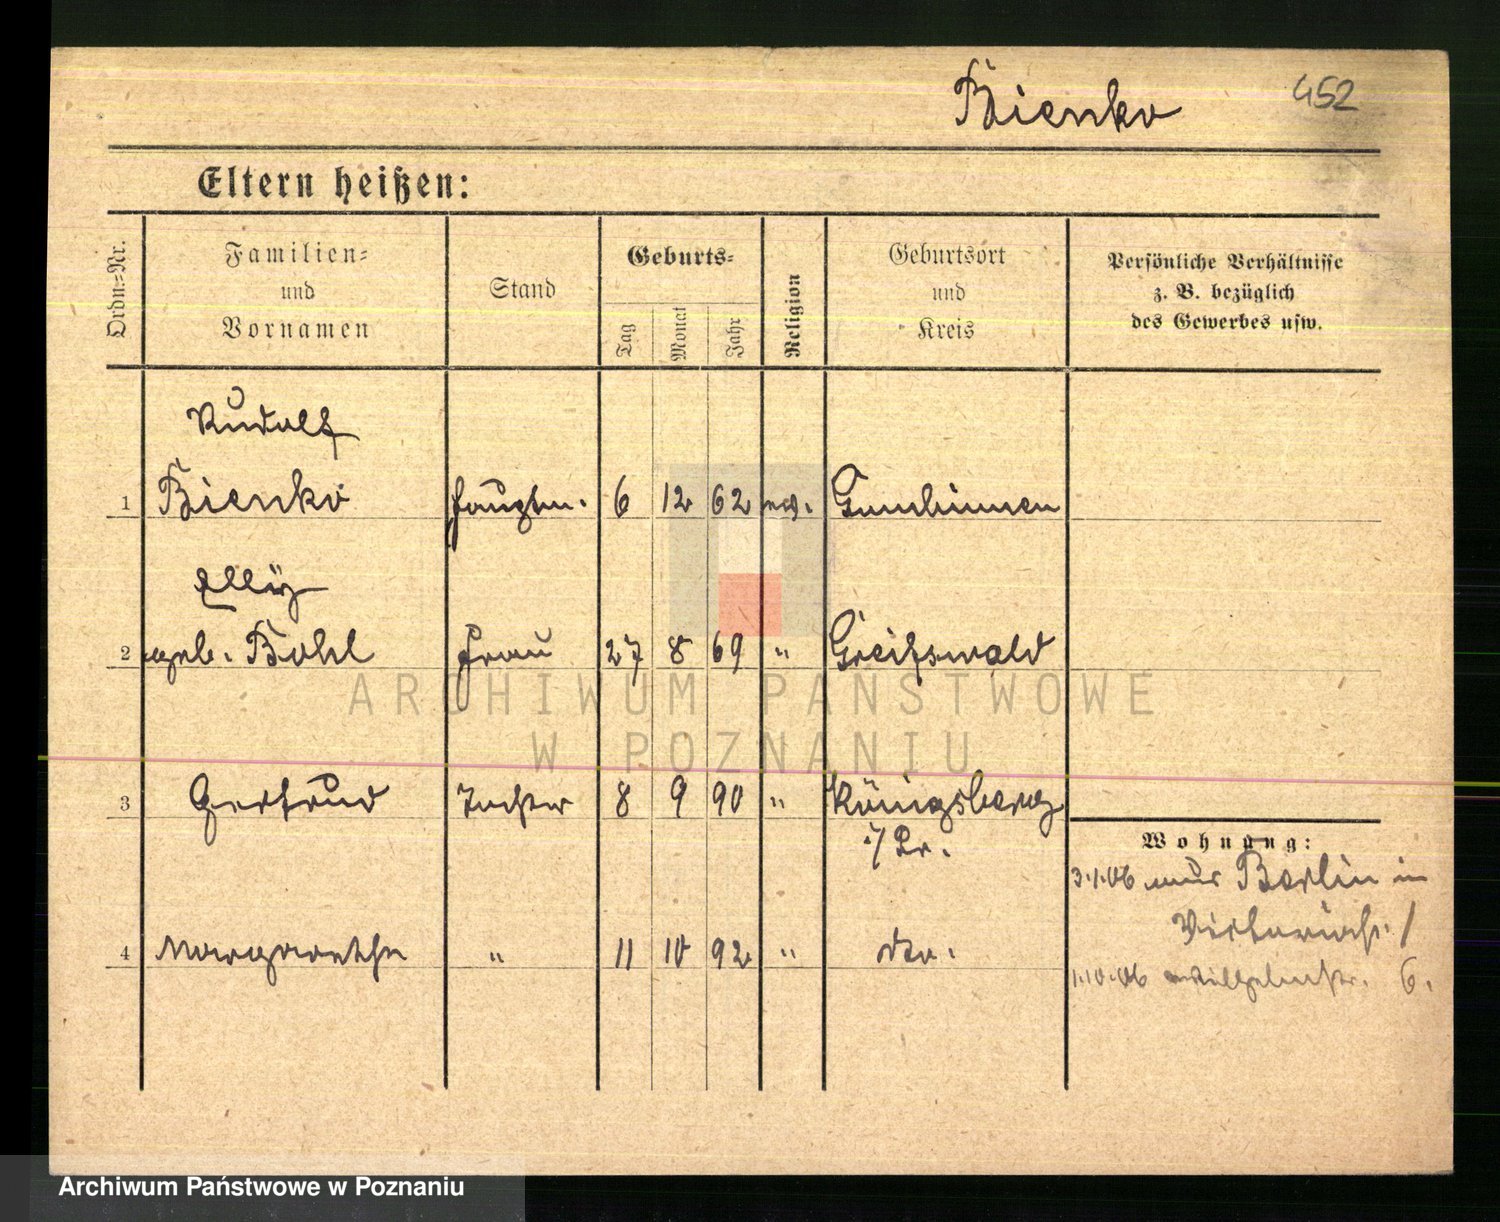 Bienko
452
Eltern heißen:
Ordn.=Nr.
Familien=
und
Vornamen
Stand
Geburts=
Tag
Monat
Jahr
Religion
Geburtsort
und
Kreis
Persönliche Verhältnisse
z. B. bezüglich
des Gewerbes usw.
Rudolf
1 Bienko Hauptm. 6 12 62 ev. Gumbinnen
Elly
2 geb. Bohl Frau 27 8 69 " Greifswald
3 Gertrud Tochter 8 9 90 " Königsberg
i/Pr.
Wohnung:
3.1.06 aus Berlin in
4 Margarethe " 11 10 92 " do.
1.10.06 Wilhelmstr. 6.
ARCHIWUM PAŃSTWOWE
W POZNANIU
Archiwum Państwowe w Poznaniu